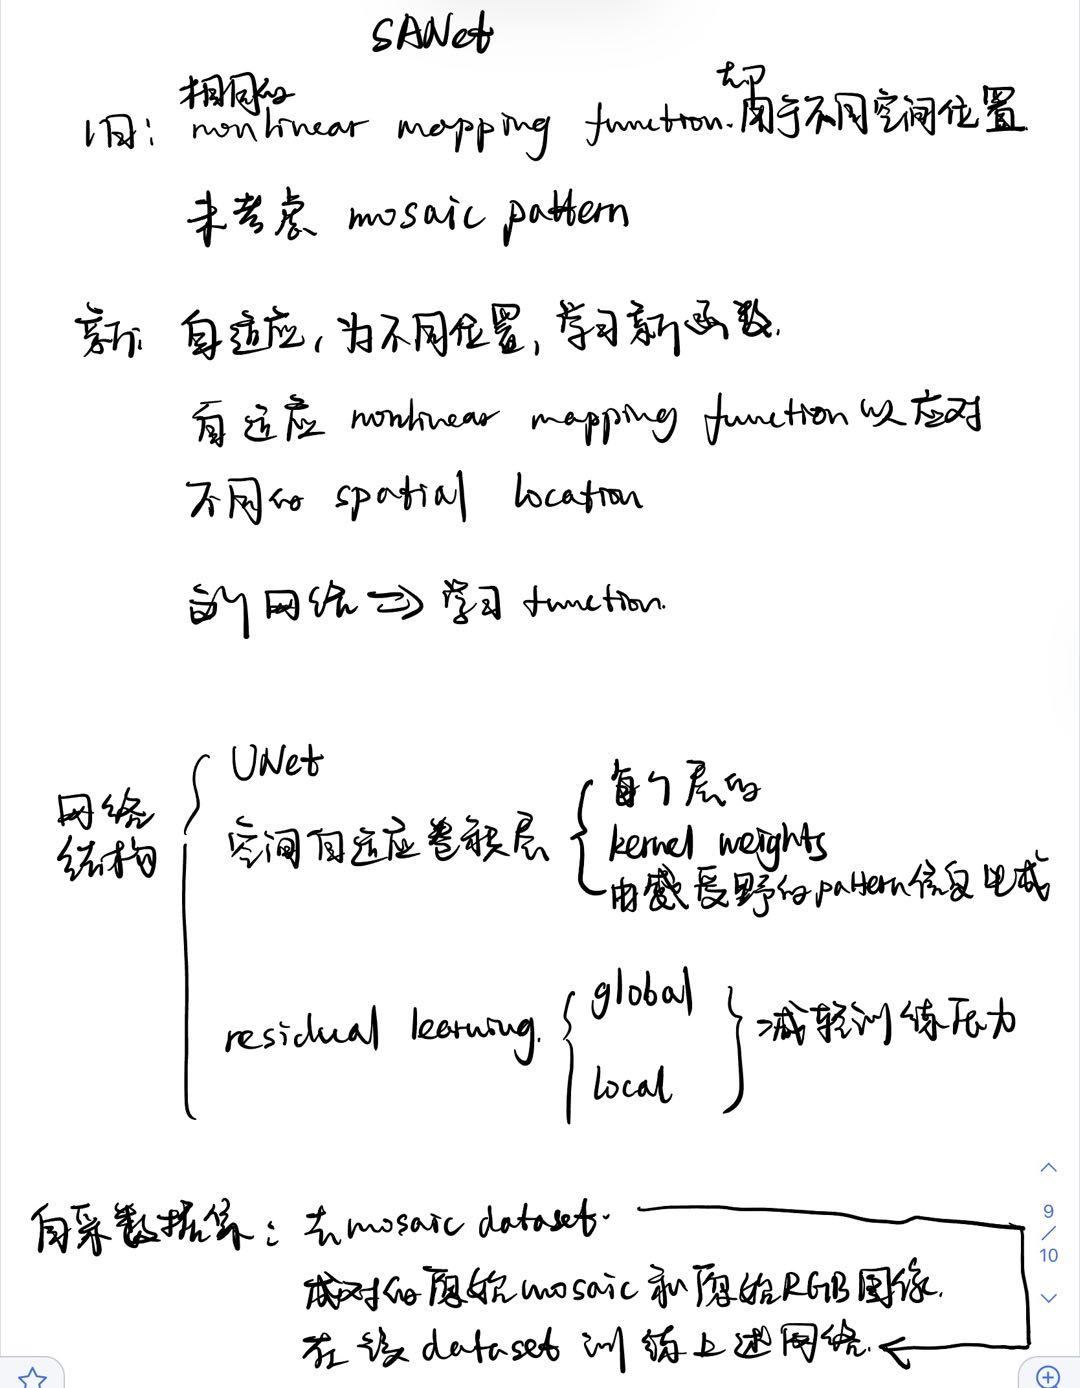 SANet
相同的 却
旧: nonlinear mapping function.用于不同空间位置
未考虑 mosaic pattern
新: 自适应, 为不同位置, 学习新函数.
自适应 nonlinear mapping function 以应对
不同的 spatial location
的网络 => 学习 function.
网络
结构
UNet
空间自适应卷积层
每个层的
kernel weights
由感受野的pattern信息生成
residual learning.
global
local
减轻训练压力
自采数据集: 去mosaic dataset.
成对的原始mosaic和原始RGB图像.
在该dataset 训练上述网络.
9
/
10